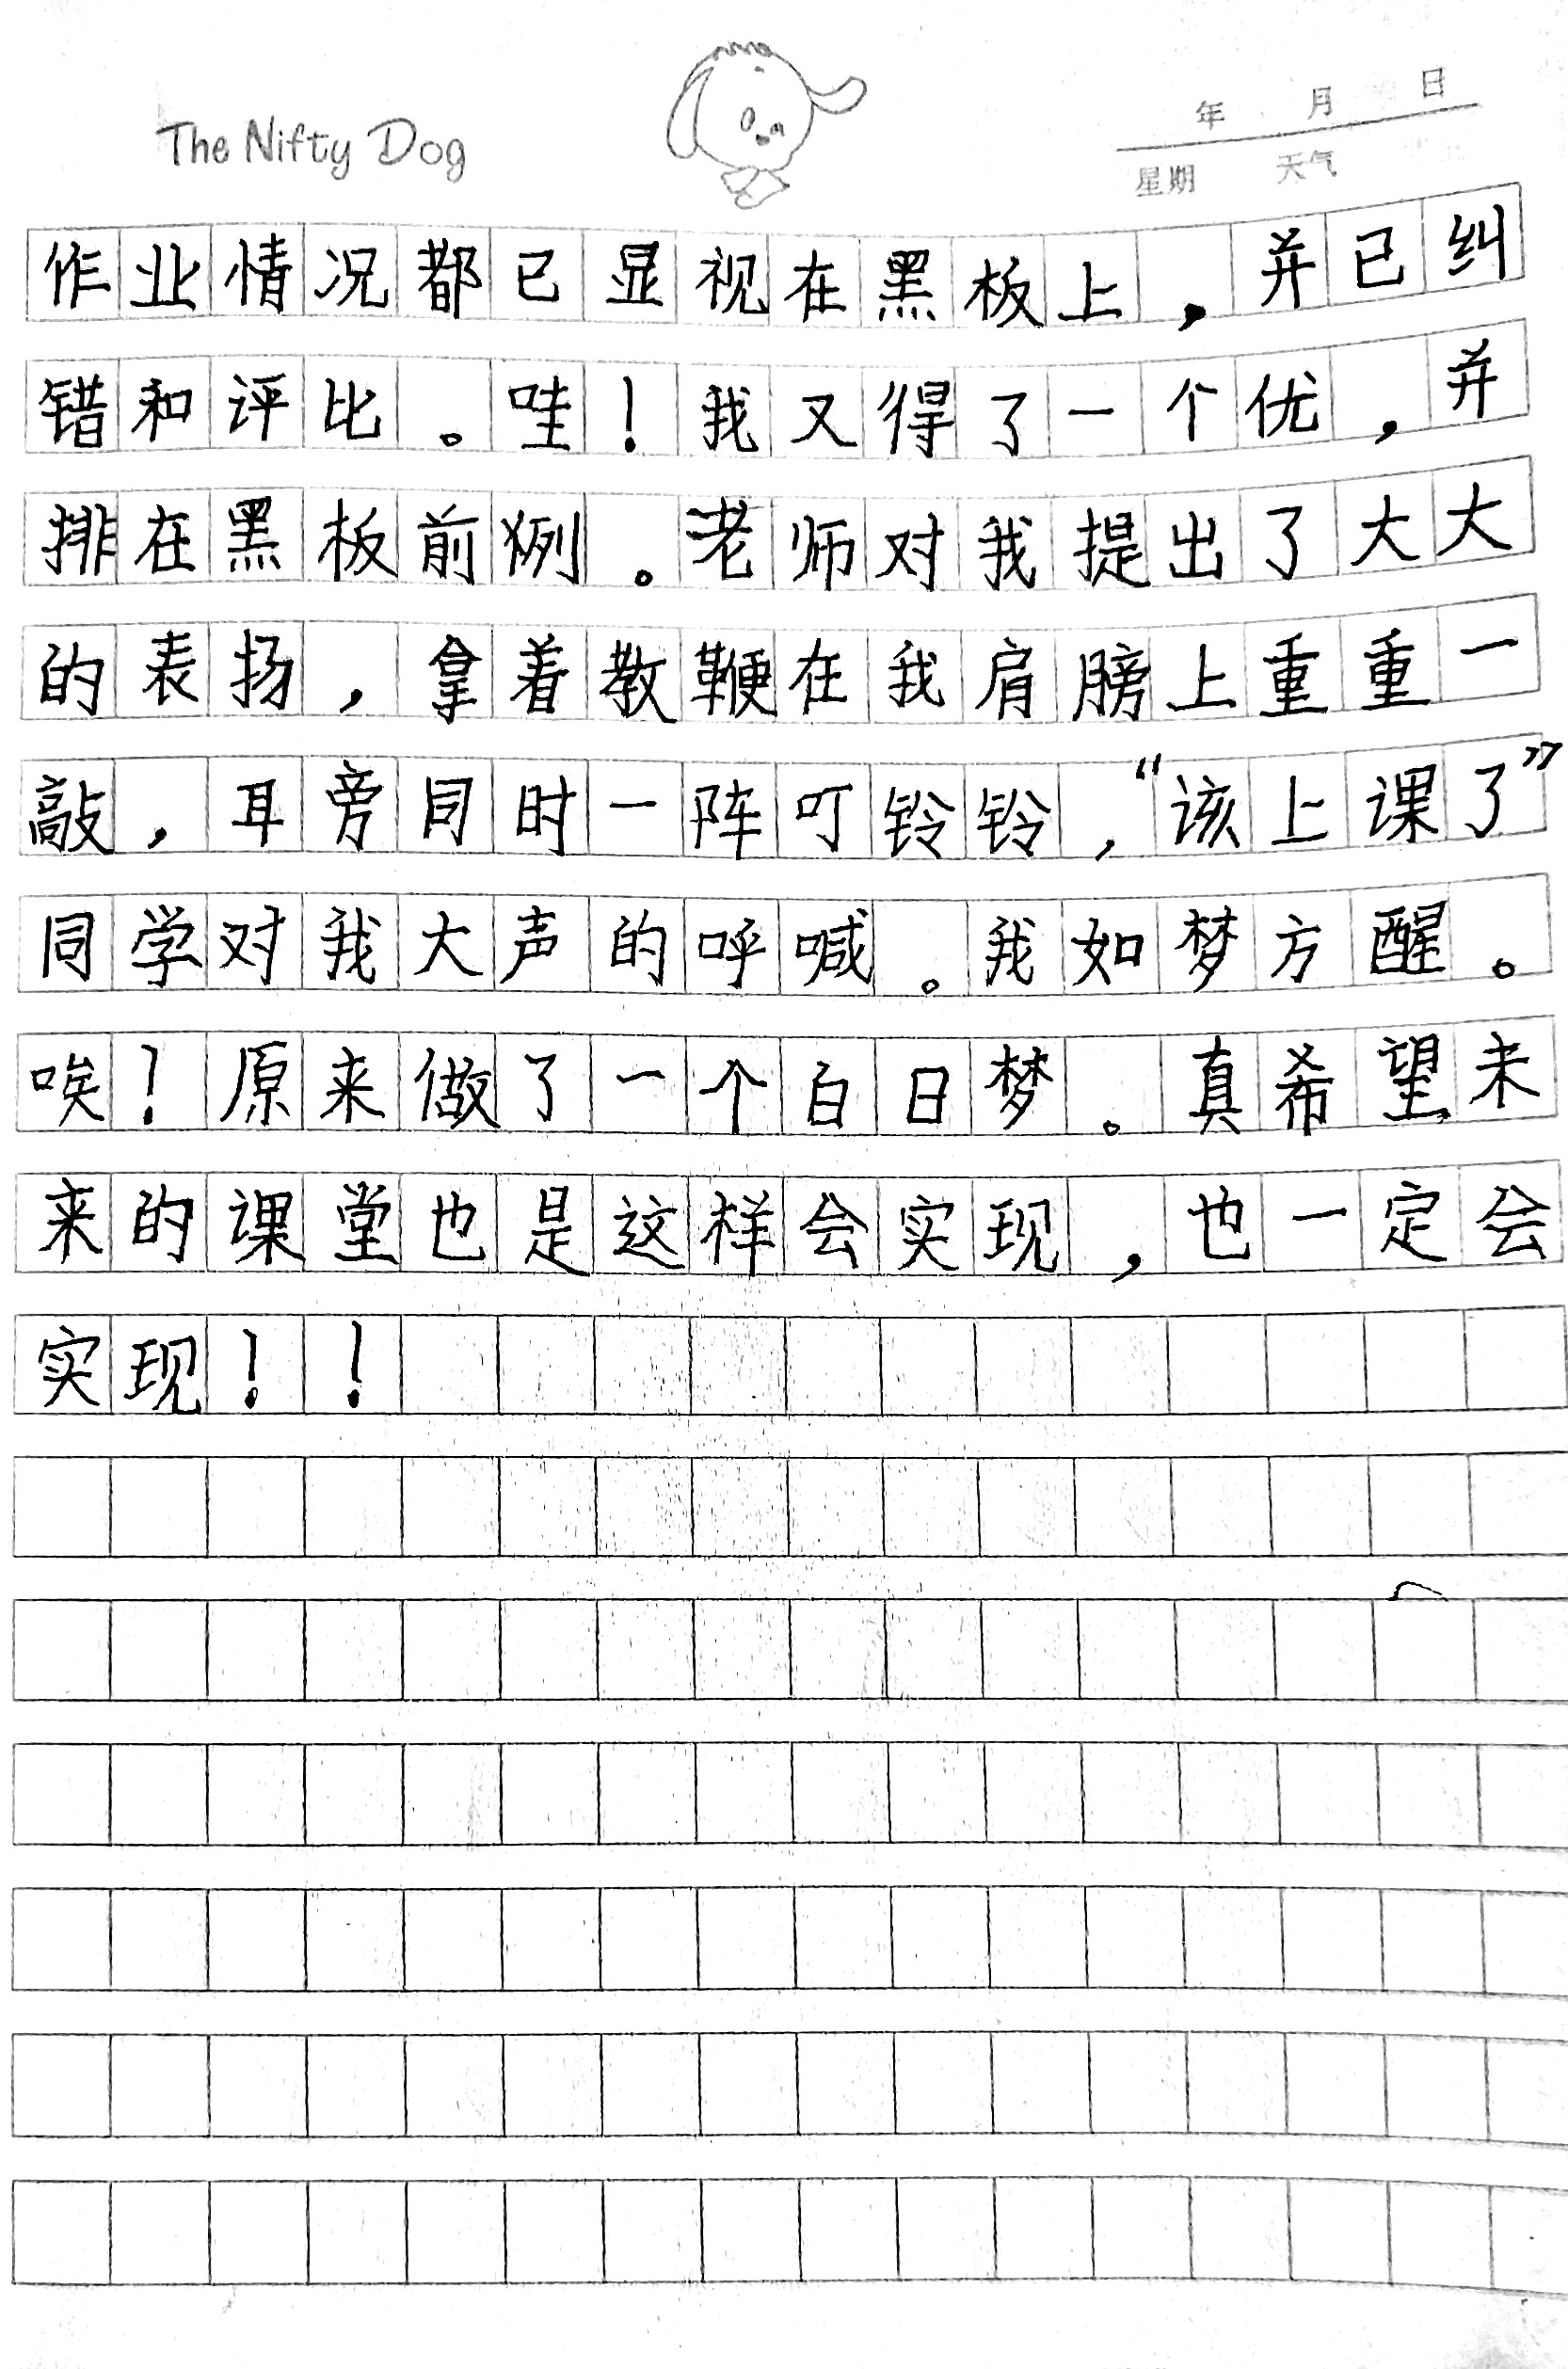 The Nifty Dog
年 月 日
星期 天气
作业情况都已显视在黑板上，并已纠
错和评比。哇！我又得了一个优，并
排在黑板前。老师对我提出了大大
的表扬，拿着教鞭在我肩膀上重重一
敲，耳旁同时一阵叮铃铃，“该上课了”
同学对我大声的呼喊。我如梦方醒。
唉！原来做了一个白日梦。真希望未
来的课堂也是这样会实现，也一定会
实现！！